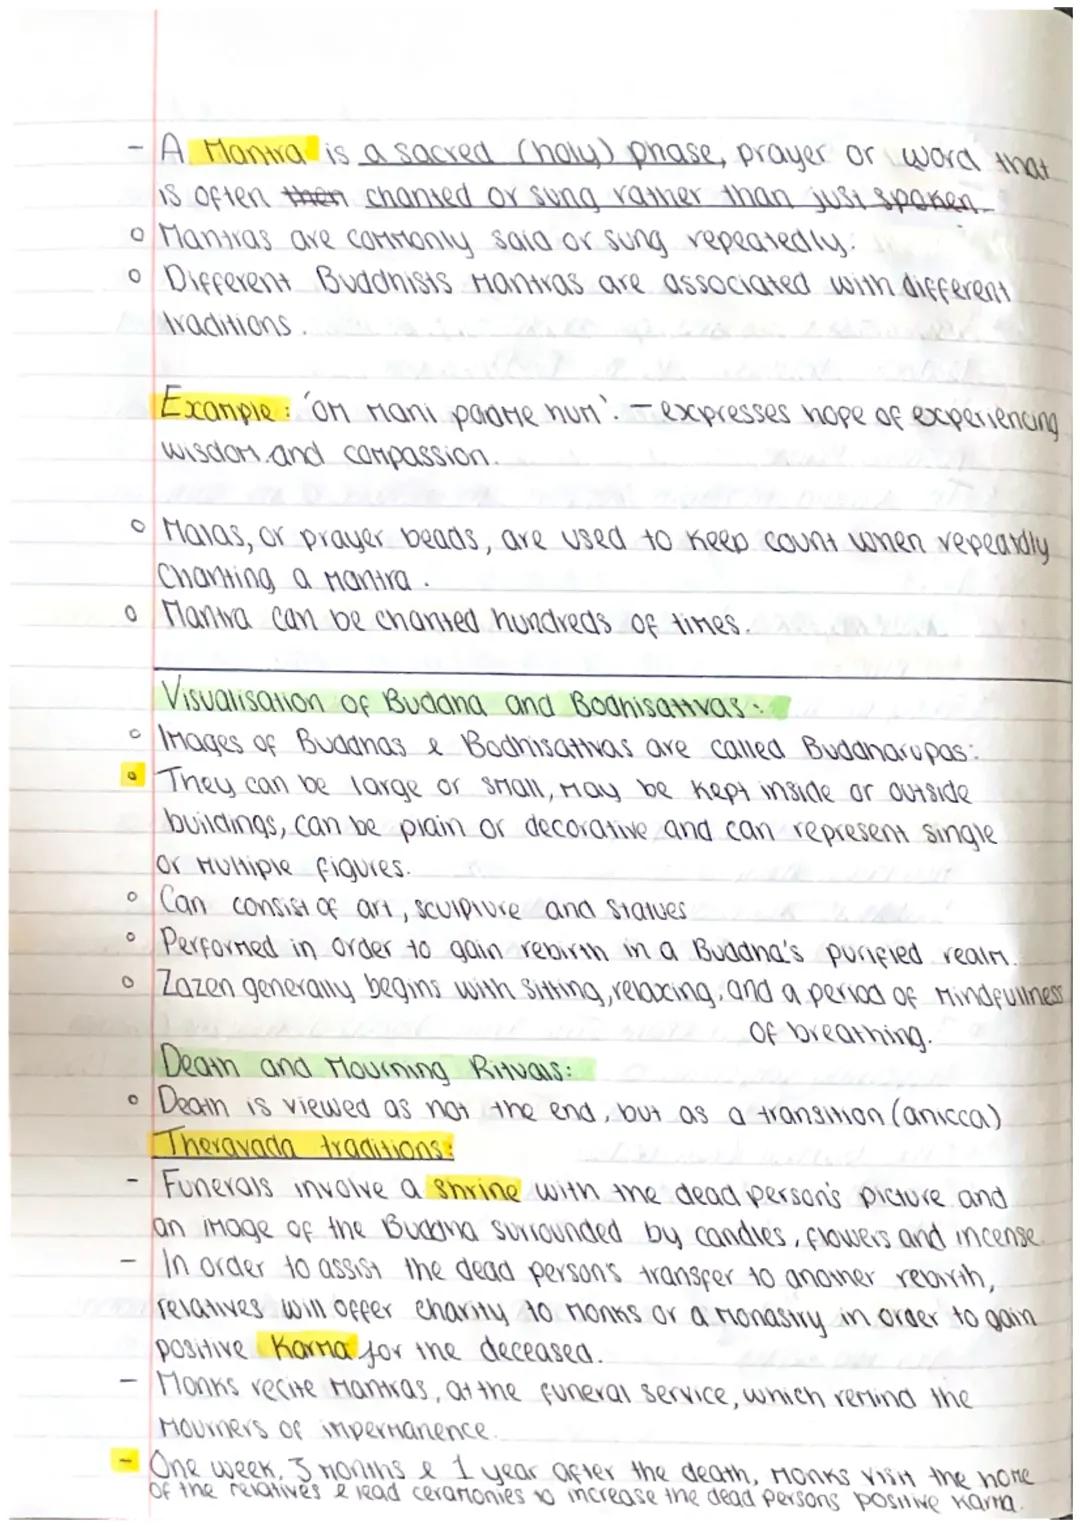 - A Mantra is a sacred (holy) phase, prayer or word that
is often then chanted or sung rather than just spoken.
o Mantras are commonly said or sung repeatedly.
o Different Buddhists Mantras are associated with different
traditions.
Example: 'om Mani padme hum'. - expresses hope of experiencing
wisdom and compassion.
o Malas, or prayer beads, are used to keep count when repeatdly
Chanting a mantra.
o Mantra can be chanted hundreds of times.
Visualisation of Buddha and Bodhisattvas:
o Images of Buddhas & Bodhisattvas are called Buddharupas:
o They can be large or small, may be kept inside or outside
buildings, can be plain or decorative and can represent single
or multiple figures.
o Can consist of art, sculpture and statues
o Performed in order to gain rebirth in a Buddha's purified realm.
o Zazen generally begins with sitting, relaxing, and a period of mindfullness
of breathing.
Death and Mourning Rituals:
o Death is viewed as not the end, but as a transition (anicca)
Theravada traditions:
- Funerals involve a shrine with the dead person's picture and
an image of the Buddha surrounded by candles, flowers and incense.
- In order to assist the dead person's transfer to another rebirth,
relatives will offer charity to monks or a monastry in order to gain
positive Karma for the deceased.
- Monks recite mantras, at the funeral service, which remind the
mourners of impermanence.
- One week, 3 months & 1 year after the death, monks visit the home
of the relatives & lead ceramonies to increase the dead persons positive karma.